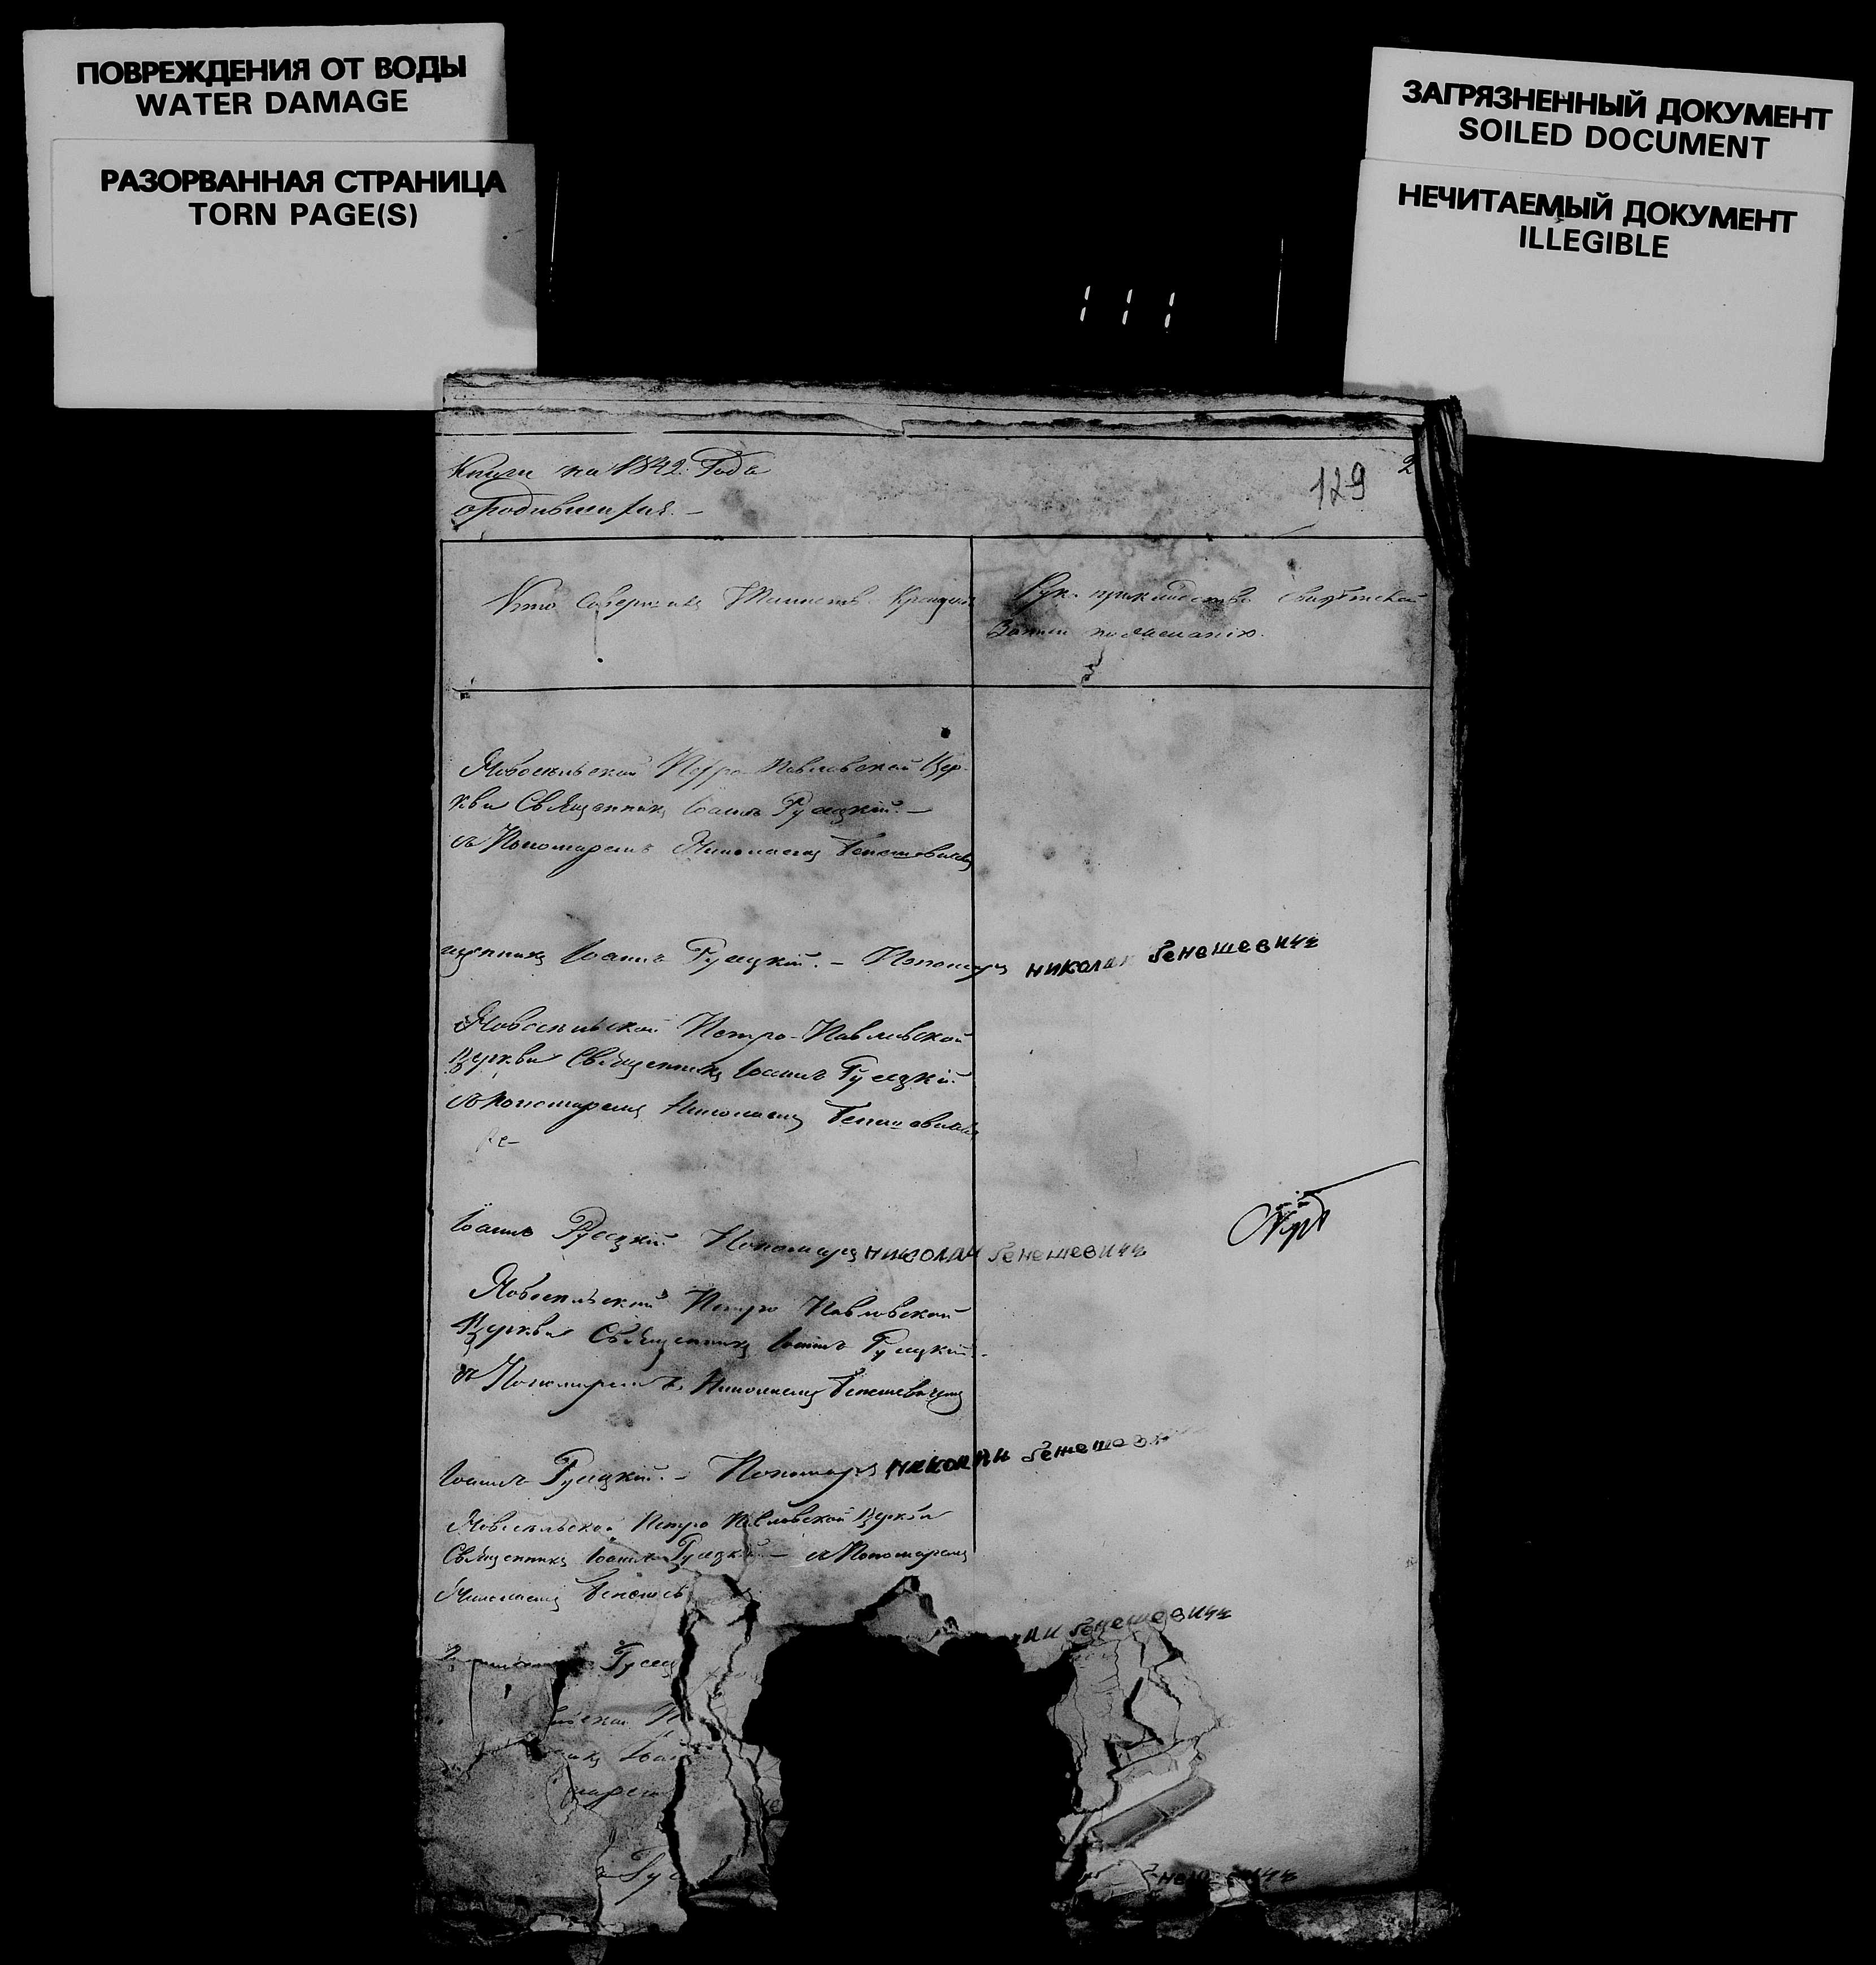 ПОВРЕЖДЕНИЯ ОТ ВОДЫ
WATER DAMAGE
РАЗОРВАННАЯ СТРАНИЦА
TORN PAGE(S)
ЗАГРЯЗНЕННЫЙ ДОКУМЕНТ
SOILED DOCUMENT
НЕЧИТАЕМЫЙ ДОКУМЕНТ
ILLEGIBLE
Книги на 1842. Года
2
129
о родившихся. –
Кто совершалъ Таинство Крещенія
Рукоприкладство Свидѣтелей
Записи по желанію.
Новосельской Петро-Павловской Цер-
кви Священникъ Іоаннъ Русецкій. –
съ Пономаремъ Николаемъ Бенешевичемъ
щенникъ Іоаннъ Русецкій. – Пономарь николаи бенешевичъ
Новосельской Петро-Павловской
Церкви Священникъ Іоаннъ Русецкій
съ Пономаремъ Николаемъ Бенешевичемъ
Іоаннъ Русецкій Пономарь николаи бенешевичъ
Новосельской Петро Павловской
Церкви Священникъ Іоаннъ Русецкій. –
съ Пономаремъ Николаемъ Бенешевичемъ
Іоаннъ Русецкій. – Пономарь николаи бенешеви
Новосельской Петро Павловской Церкви
Священникъ Іоаннъ Русецкій – съ Пономаремъ
Николаемъ Бенешев
аи бенешевичъ
Русец
ьской П
никъ Іоан
марем
Рус